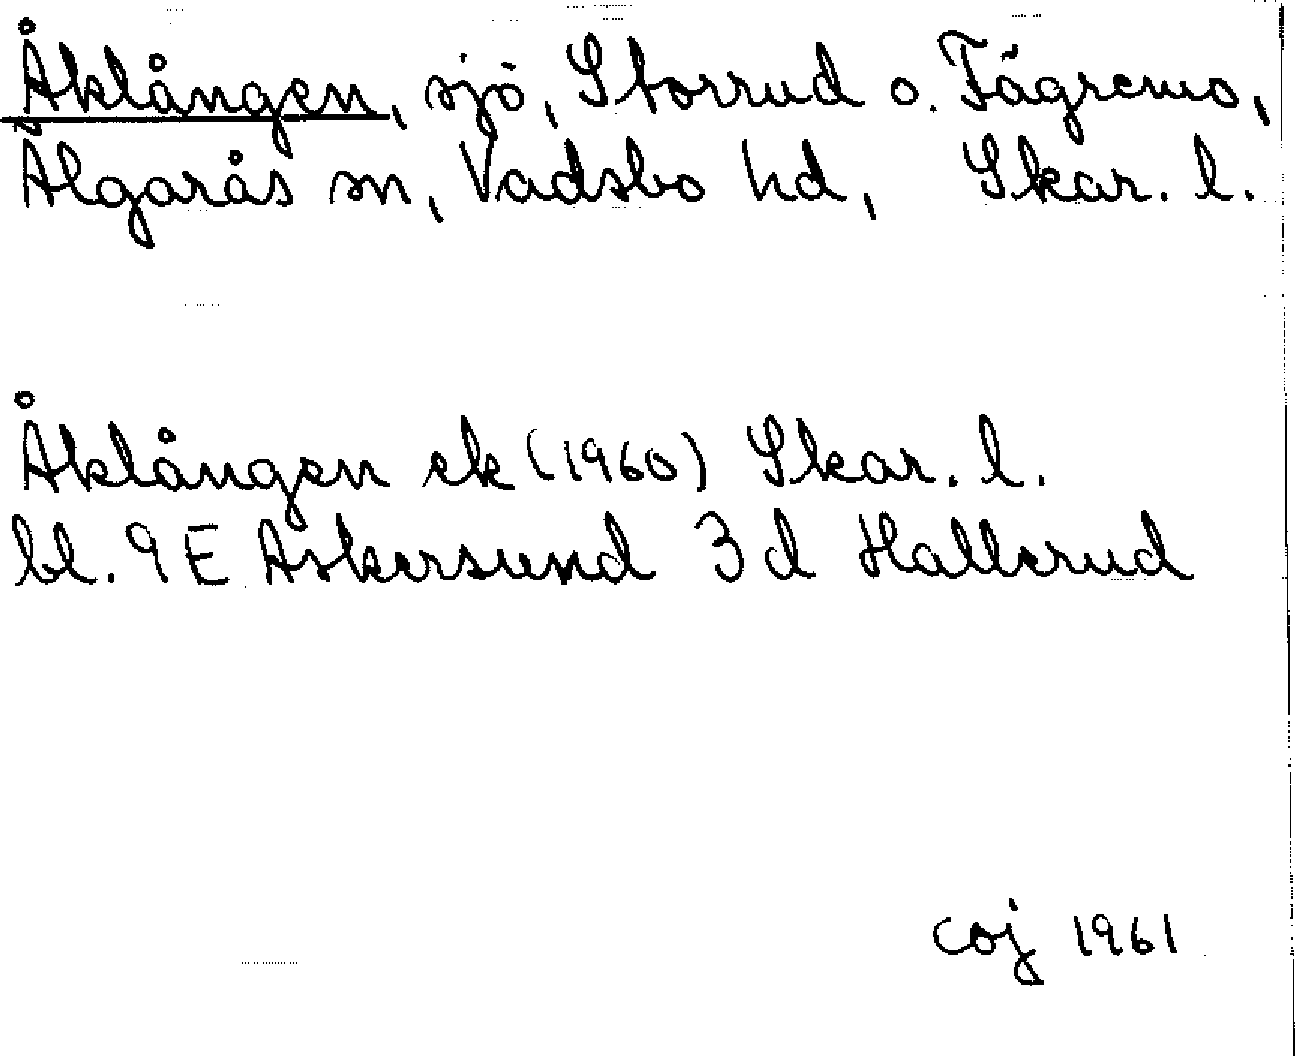 Åklången, sjö, Storrud o. Fägremo,
Älgarås sn, Vadsbo hd, Skar. l.
Åklången ek (1960) Skar. l.
bl. 9E Askersund 3d Hallerud
coj 1961